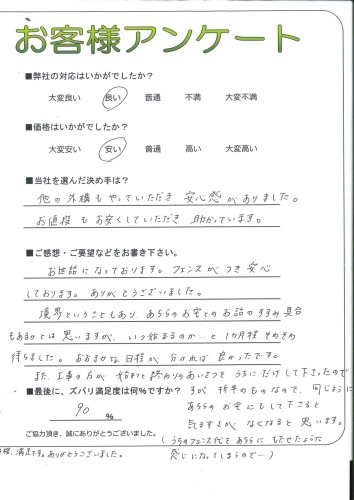 お客様アンケート
■弊社の対応はいかがでしたか？
大変良い 良い 普通 不満 大変不満
■価格はいかがでしたか？
大変安い 安い 普通 高い 大変高い
■当社を選んだ決め手は？
他の外構もやっていただき 安心感がありました。
お値段もお安くしていただき 助かっています。
■ご感想・ご要望などをお書き下さい。
お世話になっております。フェンスがつき安心
しております。ありがとうございました。
境界ということもあり、あちらのお宅とのお話のすすみ具合
もあるかとは思いますが、いつ始まるのか…と1ヶ月程そわそわ
待ちました。おおまかな日程が分かれば良かったです。
また、工事の方が始めと終わりのあいさつをうちにだけして下さったので
■最後に、ズバリ満足度は何%ですか？
すが 折半のものなので、同じように
あちらのお宅にもして下さると
気まずさがなくなると思います。
（うちのフェンス代をあちらにもたせたような
感じになってしまうので…）
90 %
ご協力頂き、誠にありがとうございました。
満足です。ありがとうございました。